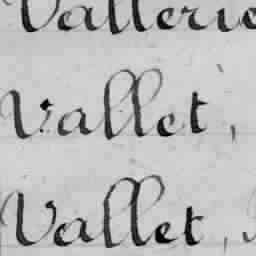 Vallerie
Vallet,
Vallet,